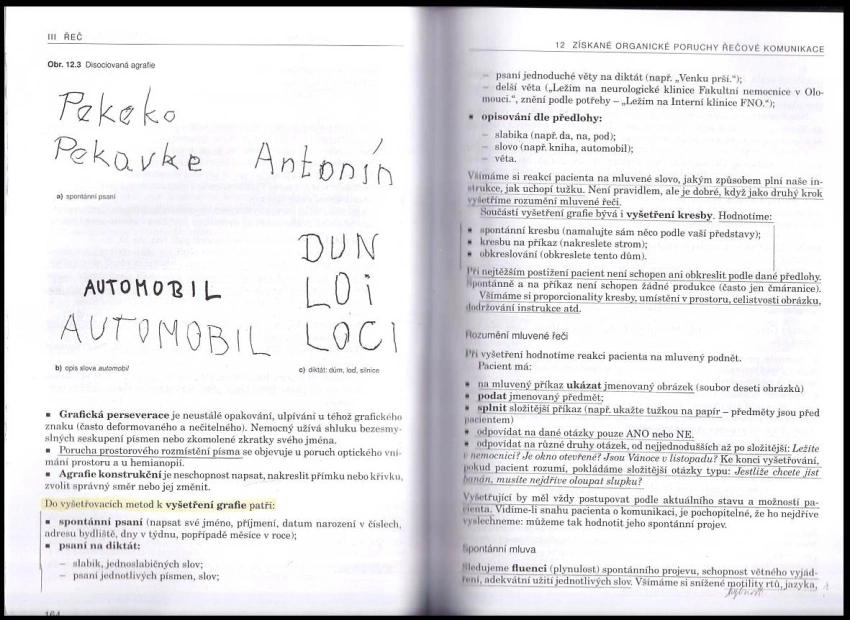 III ŘEČ
Obr. 12.3 Disociovaná agrafie
Pekeko
Pekavke Antonín
a) spontánní psaní
DUN
AUTOMOBIL LOi
AUTOMOBIL LOCI
b) opis slova automobil c) diktát: dům, loď, silnice
▪ Grafická perseverace je neustálé opakování, ulpívání u téhož grafického
znaku (často deformovaného a nečitelného). Nemocný užívá shluku bezesmy-
slných seskupení písmen nebo zkomolené zkratky svého jména.
▪ Porucha prostorového rozmístění písma se objevuje u poruch optického vní-
mání prostoru a u hemianopií.
▪ Agrafie konstrukční je neschopnost napsat, nakreslit přímku nebo křivku,
zvolit správný směr nebo jej změnit.
Do vyšetřovacích metod k vyšetření grafie patří:
▪ spontánní psaní (napsat své jméno, příjmení, datum narození v číslech,
adresu bydliště, dny v týdnu, popřípadě měsíce v roce);
▪ psaní na diktát:
– slabik, jednoslabičných slov;
– psaní jednotlivých písmen, slov;
164
12 ZÍSKANÉ ORGANICKÉ PORUCHY ŘEČOVÉ KOMUNIKACE
– psaní jednoduché věty na diktát (např. „Venku prší.“);
– delší věta („Ležím na neurologické klinice Fakultní nemocnice v Olo-
mouci.“, znění podle potřeby – „Ležím na Interní klinice FNO.“);
▪ opisování dle předlohy:
– slabika (např. da, na, pod);
– slovo (např. kniha, automobil);
– věta.
Všímáme si reakcí pacienta na mluvené slovo, jakým způsobem plní naše in-
strukce, jak uchopí tužku. Není pravidlem, ale je dobré, když jako druhý krok
vyšetříme rozumění mluvené řeči.
Součástí vyšetření grafie bývá i vyšetření kresby. Hodnotíme:
▪ spontánní kresbu (namalujte sám něco podle vaší představy);
▪ kresbu na příkaz (nakreslete strom);
▪ obkreslování (obkreslete tento dům).
Při nejtěžším postižení pacient není schopen ani obkreslit podle dané předlohy.
Spontánně a na příkaz není schopen žádné produkce (často jen čmáranice).
Všímáme si proporcionality kresby, umístění v prostoru, celistvosti obrázku,
dodržování instrukce atd.
Rozumění mluvené řeči
Při vyšetření hodnotíme reakci pacienta na mluvený podnět.
Pacient má:
▪ na mluvený příkaz ukázat jmenovaný obrázek (soubor deseti obrázků)
▪ podat jmenovaný předmět;
▪ splnit složitější příkaz (např. ukažte tužkou na papír – předměty jsou před
pacientem)
▪ odpovídat na dané otázky pouze ANO nebo NE.
▪ odpovídat na různé druhy otázek, od nejjednodušších až po složitější: Ležíte
v nemocnici? Je okno otevřené? Jsou Vánoce v listopadu? Ke konci vyšetřování,
pokud pacient rozumí, pokládáme složitější otázky typu: Jestliže chcete jíst
banán, musíte nejdříve oloupat slupku?
Vyšetřující by měl vždy postupovat podle aktuálního stavu a možností pa-
cienta. Vidíme-li snahu pacienta o komunikaci, je pochopitelné, že ho nejdříve
vyslechneme: můžeme tak hodnotit jeho spontánní projev.
Spontánní mluva
Sledujeme fluenci (plynulost) spontánního projevu, schopnost větného vyjád-
ření, adekvátní užití jednotlivých slov. Všímáme si snížené motility rtů, jazyka,